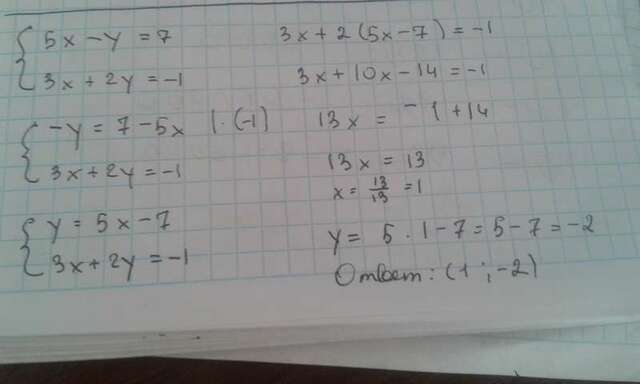 5x - y = 7
3x + 2y = -1
-y = 7 - 5x | · (-1)
3x + 2y = -1
y = 5x - 7
3x + 2y = -1
3x + 2(5x - 7) = -1
3x + 10x - 14 = -1
13x = -1 + 14
13x = 13
x = 13/13 = 1
y = 5 · 1 - 7 = 5 - 7 = -2
Ответ: (1 ; -2)